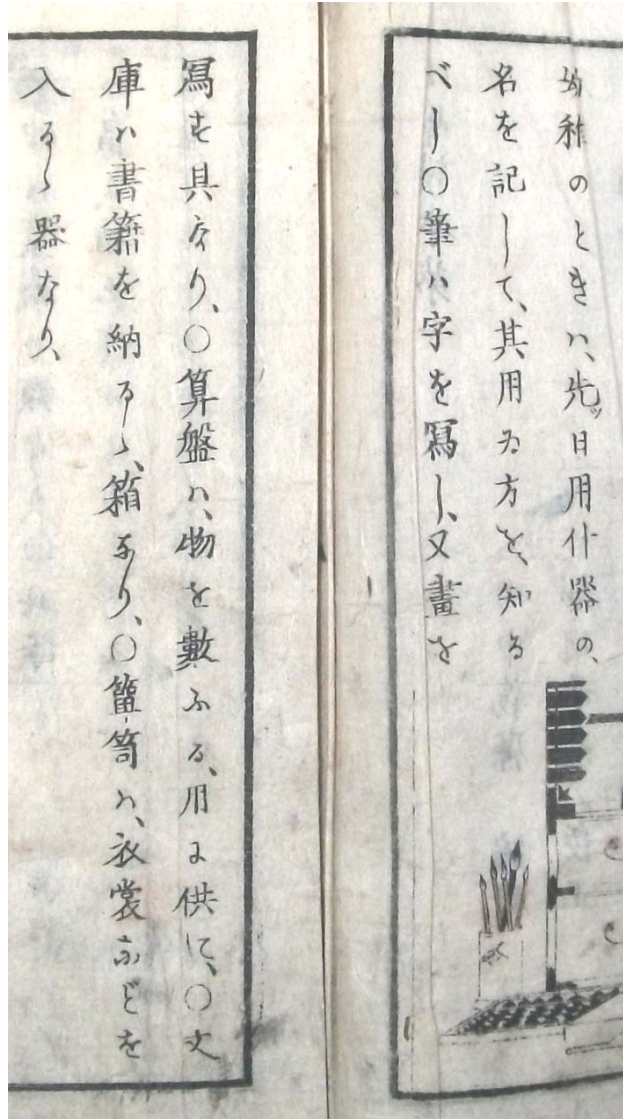 幼稚のときハ、先ッ日用什器の、
名を記して、其用ゐ方を、知る
べし〇筆ハ字を寫し、又畫を
寫す具なり、〇算盤ハ、物を數ふる、用に供す、〇文
庫ハ書籍を納るゝ、箱なり、〇簞笥ハ、衣裳などを
入るゝ器なり、